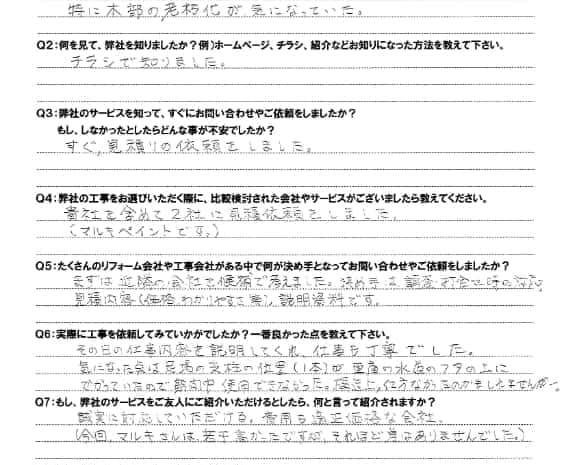 特に木部の老朽化が気になっていた。
Q2：何を見て、弊社を知りましたか？例）ホームページ、チラシ、紹介などお知りになった方法を教えて下さい。
チラシで知りました。
Q3：弊社のサービスを知って、すぐにお問い合わせやご依頼をしましたか？
もし、しなかったとしたらどんな事が不安でしたか？
すぐ、見積りの依頼をしました。
Q4：弊社の工事をお選びいただく際に、比較検討された会社やサービスがございましたら教えてください。
貴社を含めて2社に見積依頼をしました。
（マルキペイントです。）
Q5：たくさんのリフォーム会社や工事会社がある中で何が決め手となってお問い合わせやご依頼をしましたか？
まずは近隣の会社を候補で考えました。決め手は、調査・打合せ時の対応
見積内容（価格、わかりやすさ等）、説明資料です。
Q6：実際に工事を依頼してみていかがでしたか？一番良かった点を教えて下さい。
その日の仕事内容を説明してくれ、仕事も丁寧でした。
気になった点は足場の支柱の位置（1本）が 車庫の水道のフタの上に
でかっていたので 期間中 使用できなかった。構造上、仕方なかったのかもしれませんが…
Q7：もし、弊社のサービスをご友人にご紹介いただけるとしたら、何と言って紹介されますか？
誠実に対応していただける。費用も適正価格な会社。
（今回、マルキさんは、若干高かったですが、それほど差はありませんでした。）